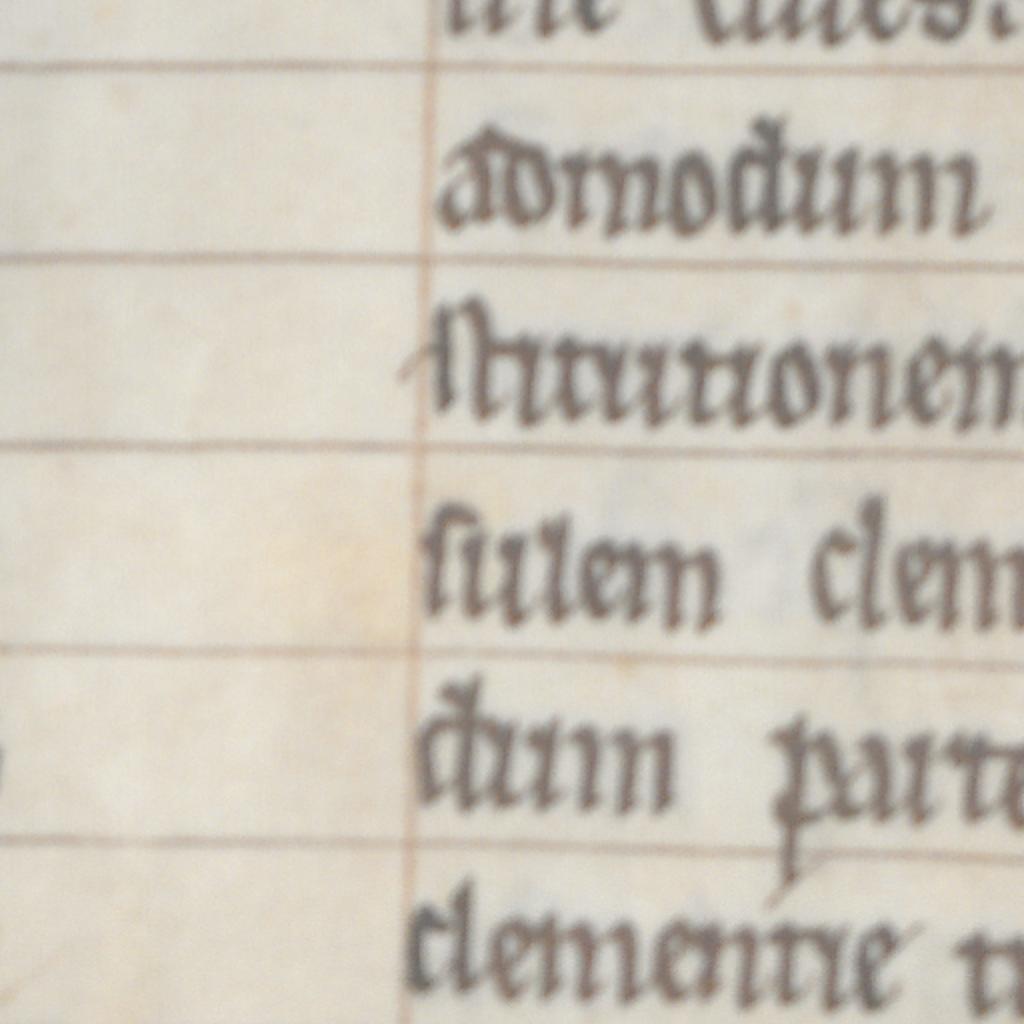 admodum
stitutionem
sulem clem
dum parte
clementie